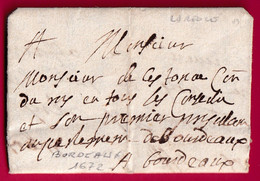 A Monsieur
Monsieur de Lestonac Con
du roy en tous ses Conseils
et son premier
au parlement de Bourdeaux
BORDEAUX A bourdeaux
1672